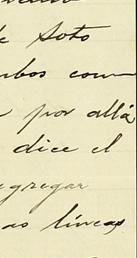 de Soto
mbos com
por allá
dice el
egregar
as líneas